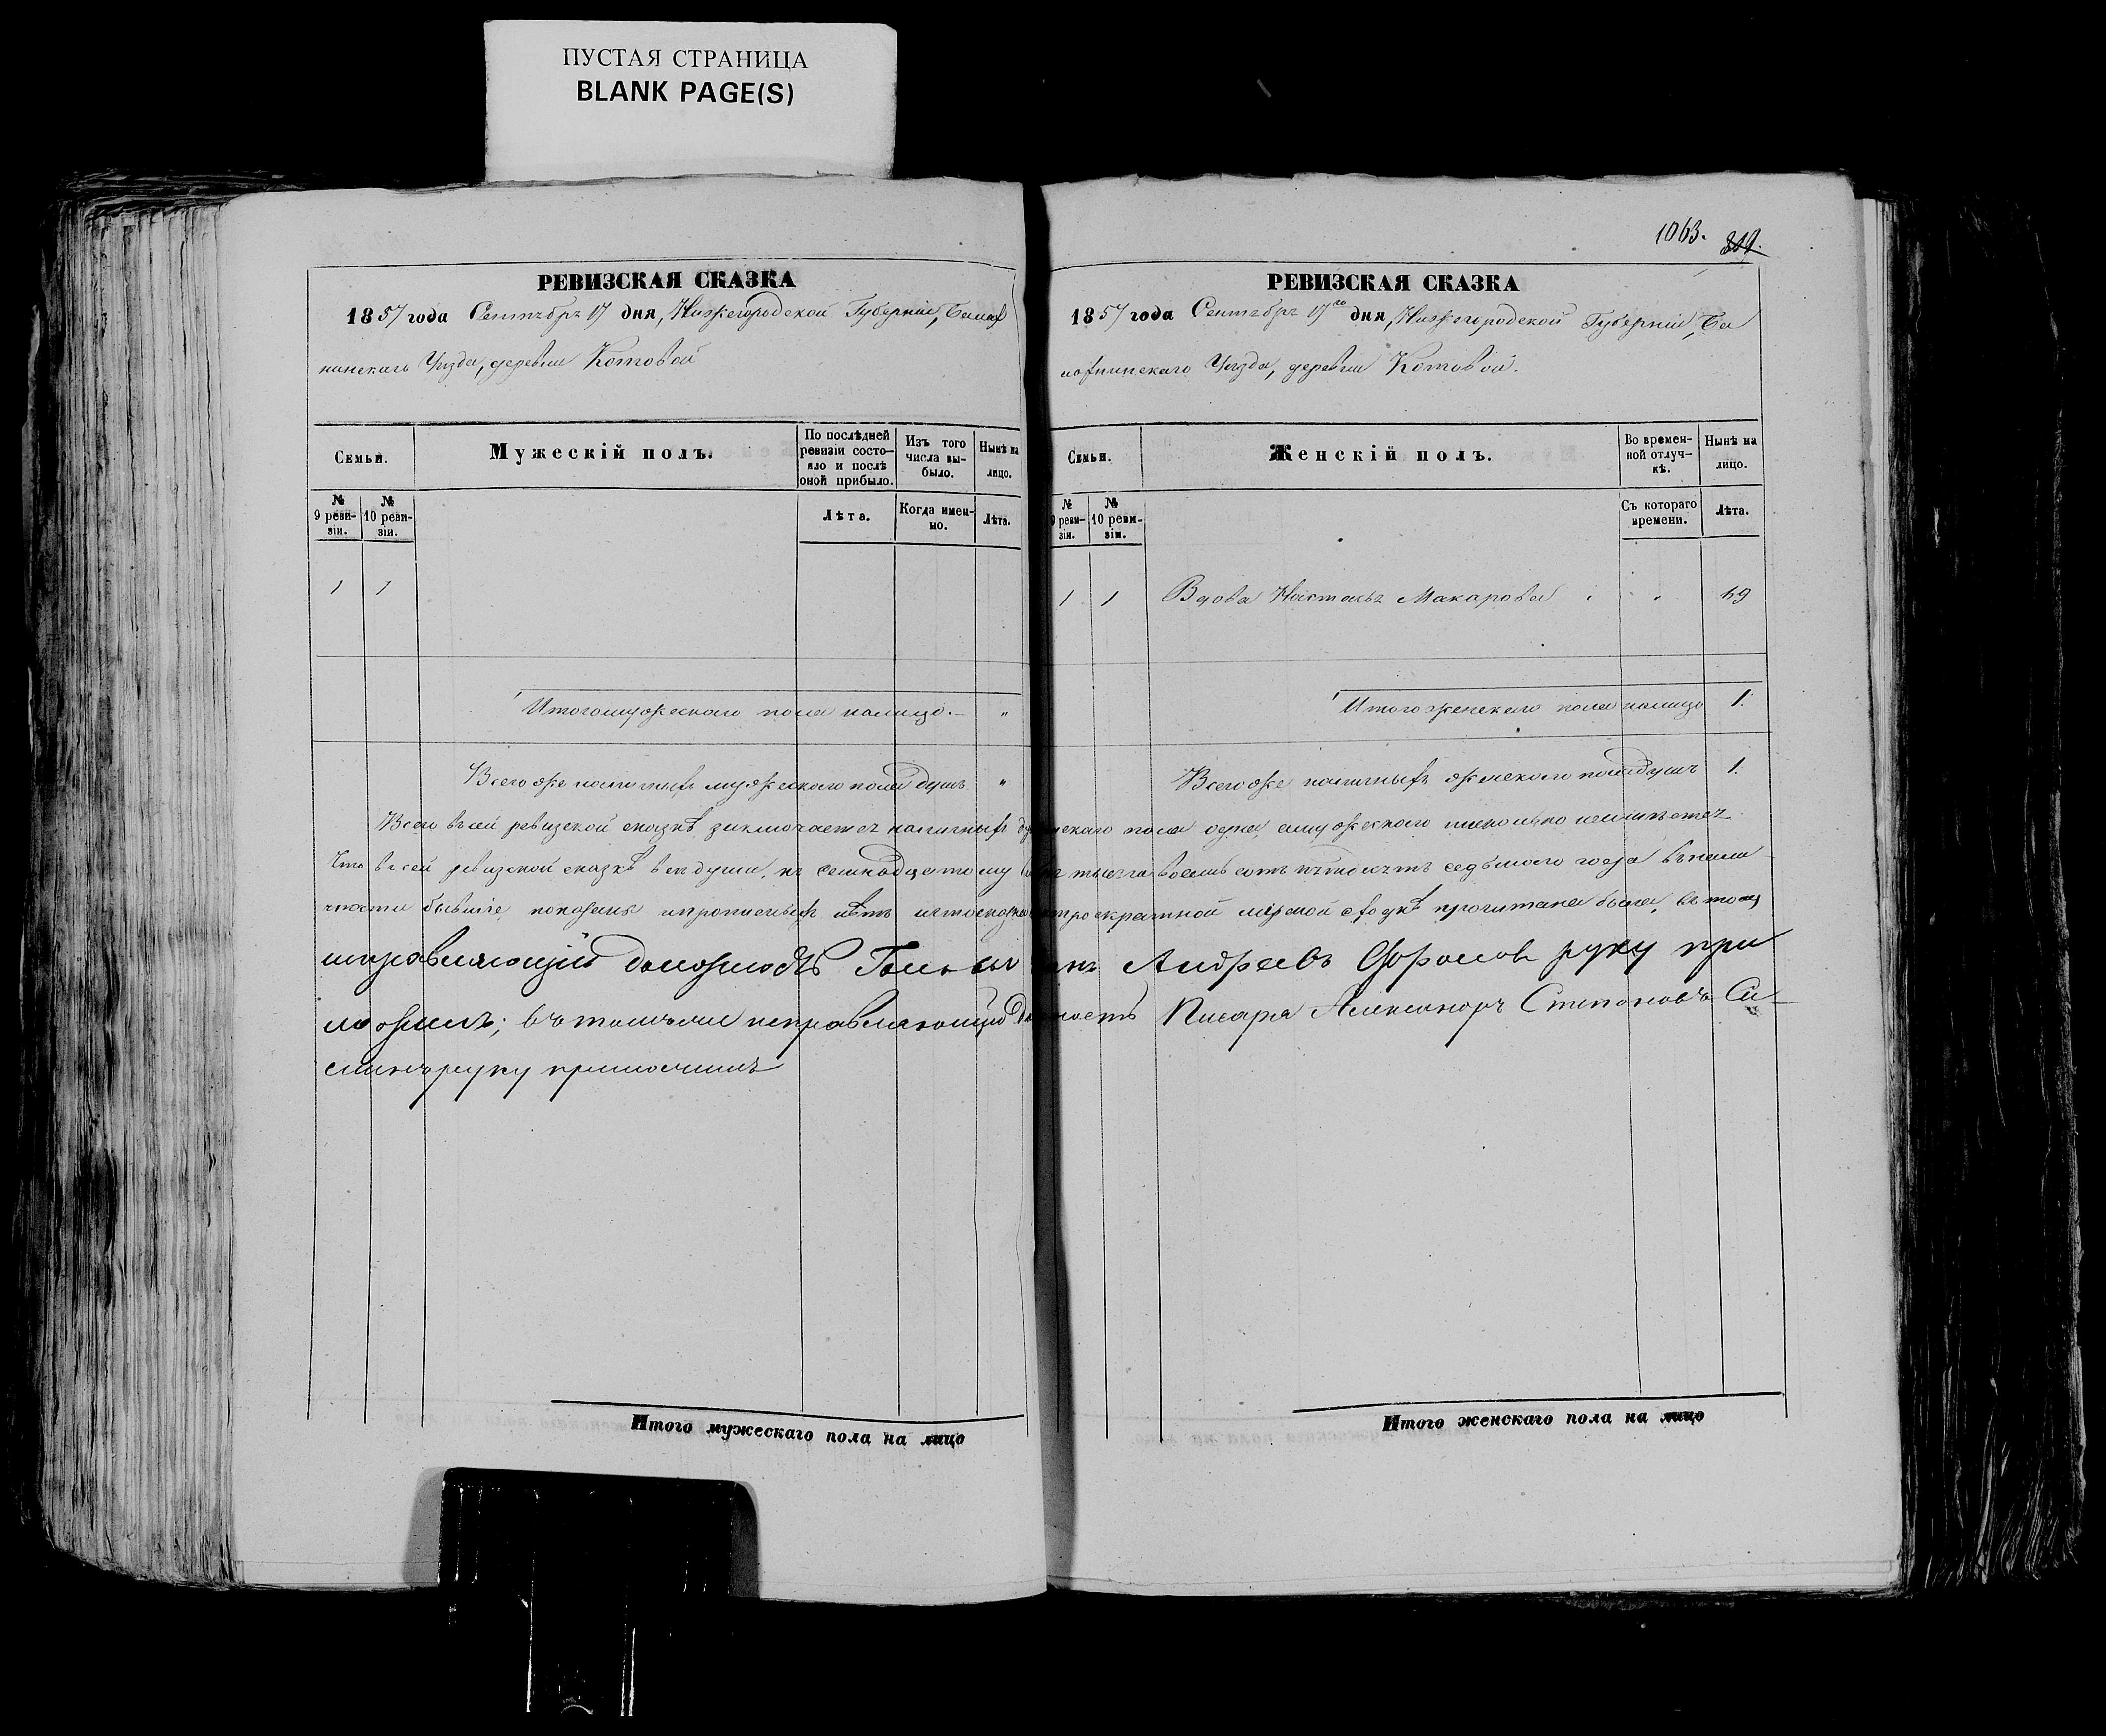 ПУСТАЯ СТРАНИЦА
BLANK PAGE(S)
1063.
РЕВИЗСКАЯ СКАЗКА
1857 года Сентября 17 дня, Нижегородской Губерніи, Балах
нинскаго Уѣзда, деревни Котовой
Семьи.
Мужескій полъ.
По послѣдней ревизіи состояло и послѣ оной прибыло.
Изъ того числа выбыло.
Нынѣ на лицо.
№ 9 ревизіи.
№ 10 ревизіи.
Лѣта.
Когда именно.
Лѣта.
1 1
Итого мужескаго пола налицо. — „
Всего же наличныхъ мужескаго пола душъ „
РЕВИЗСКАЯ СКАЗКА
1857 года Сентября 17го дня, Нижегородской Губерніи, Ба
лахнинскаго Уѣзда, деревни Котовой.
Семьи.
Женскій полъ.
Во временной отлучкѣ.
Нынѣ на лицо.
№ 9 ревизіи.
№ 10 ревизіи.
Съ котораго времени.
Лѣта.
1 1 Вдова Настасья Макарова „
Итого женскаго пола налицо 1.
Всего же наличныхъ женскаго пола душъ 1.
Всего въ сей ревизской сказкѣ заключается наличныхъ пола одна, а мужескаго нисколько неимѣется
Что въ сей ревизской сказкѣ всѣ души, къ семнадцатому тысяча восемь сотъ пятьдесятъ седьмаго года въ нали
чности бывшіе показаны и прописныхъ нѣтъ мірской сходкѣ прочитана была, въ томъ
исправляющій должность Андреевъ руку при
ложилъ; въ томъ же исправляющій должность Писаря Александръ Степановъ Си
руку приложилъ
Итого мужескаго пола на лицо
Итого женскаго пола на лицо